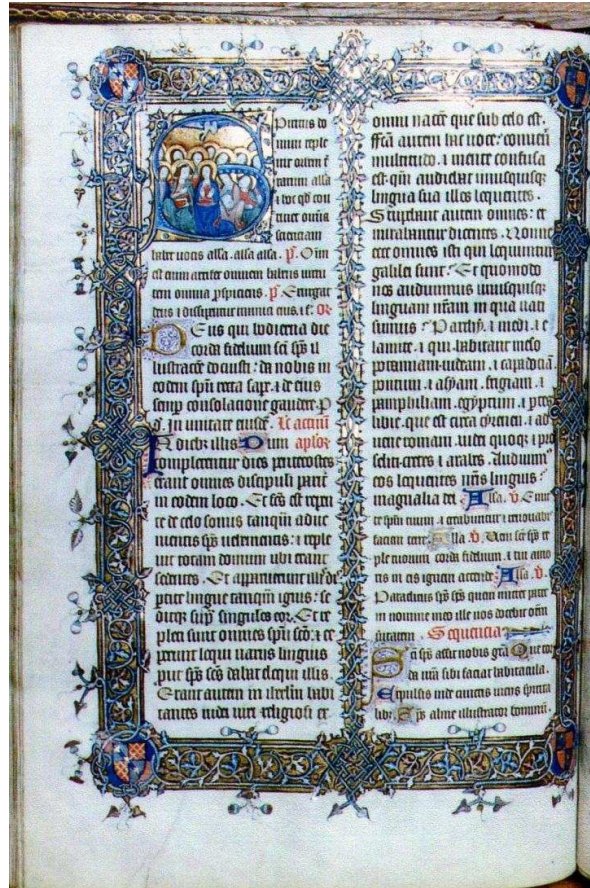 Spiritus do
mini reple
uit orbem t
rarum alla
⁊ hoc qd con
tinet omnia
scienciam
habet uocis alla. alla alla. p̄.
est enim artifex omnem habens uirtu
tem omnia ꝓspiciens. p̄. Exurgat
deus ⁊ dissipentur inimici eius. ⁊ c̄. or̄
Deus qui hodierna die
corda fidelium sc̄i sp̄s il
lustracōe docuisti: da nobis in
eodem sp̄u recta sape. ⁊ de eius
semp consolacione gaudere. P
In unitate eiusdē. Lc̄ actuū
In diebȝ illis Dum aplor̄
Complerentur dies pentecostes
erant omnes discipuli parit̄
in eodem loco. Et fc̄s est repen
te de celo sonus tanqū adue
nientis sp̄s uehementis: ⁊ reple
uit totam domum ubi erant
sedentes. Et apparuerunt illis di
ꝑtite lingue tanqū ignis: se
ditqȝ supͣ singulos eoꝝ. Et re
pleti sunt omnes sp̄u sc̄o: ⁊ ce
perunt loqui uariis linguis
put sp̄s sc̄s dabat eloqui illis.
Erant autem in ihrl̄m habi
tantes iudei uiri religiosi ex
omni nac̄oe que sub celo est.
ffc̄a autem hac uoce: conuen̄
multitudo. ⁊ mente confusa
est. qm̄ audiebat unusquisqȝ
lingua sua illos loquentes.
Stupebant autem omnes: et
mirabantur dicentes. Nonne
ecce omnes isti qui loquuntur
galilei sunt? Et quomodo
nos audiuimus unusquisqȝ
linguam nr̄am in qua nati
sumus? Parthy. ⁊ medi. ⁊ e
lamite. ⁊ qui habitant meso
potamiam. iudeam. ⁊ capadociā.
pontum. ⁊ asyam. frigiam. ⁊
pamphiliam. egyptum. ⁊ ptes
libie. que est circa cyrenen. ⁊ ad
uene romani. iudei quoqȝ ⁊ pro
seliti. cretes ⁊ arabes. Audiuimꝰ
eos loquentes nr̄is linguis:
magnalia dei Alla. v̄. Emit
te spm̄ tuum ⁊ creabuntur ⁊ renouabis
faciem terre. Alla v̄. Ueni sc̄e sp̄s re
ple tuorum corda fidelium. ⁊ tui amo
ris in eis ignem accende. Alla. v̄.
Paraclitus sp̄s sc̄s quem mittet pater
in nomine meo ille uos docebit om̄em
ueritatem. Sequencia
Sc̄i sp̄s assit nobis grā Que cor
da nr̄a sibi faciat habitacula.
Expulsis inde cunctis uiciis spirita
libȝ. Sp̄s alme illustrator hominū.